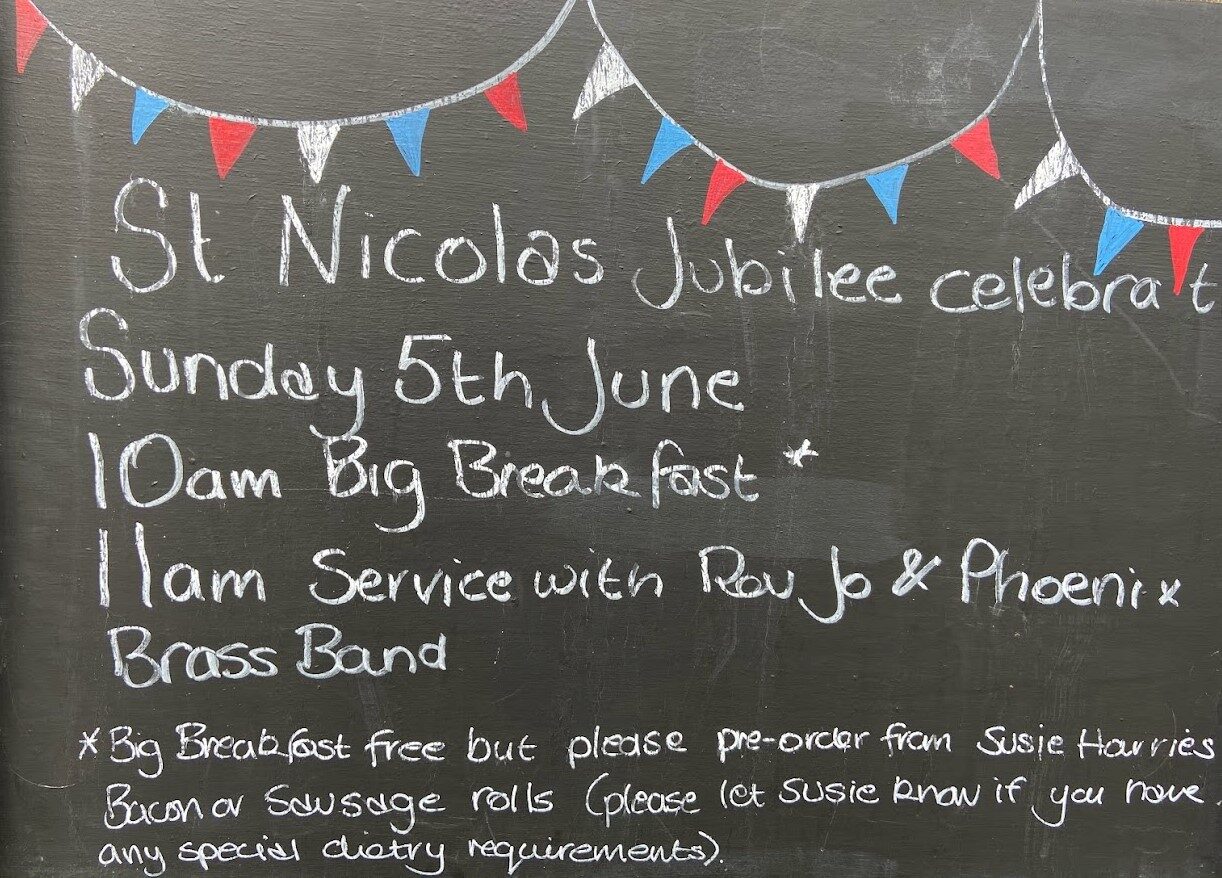 St Nicolas Jubilee celebrat
Sunday 5th June
10am Big Breakfast *
11am Service with Rev Jo & Phoenix
Brass Band
* Big Breakfast free but please pre-order from Susie Harries
Bacon or Sausage rolls (please let Susie know if you have
any special dietry requirements).